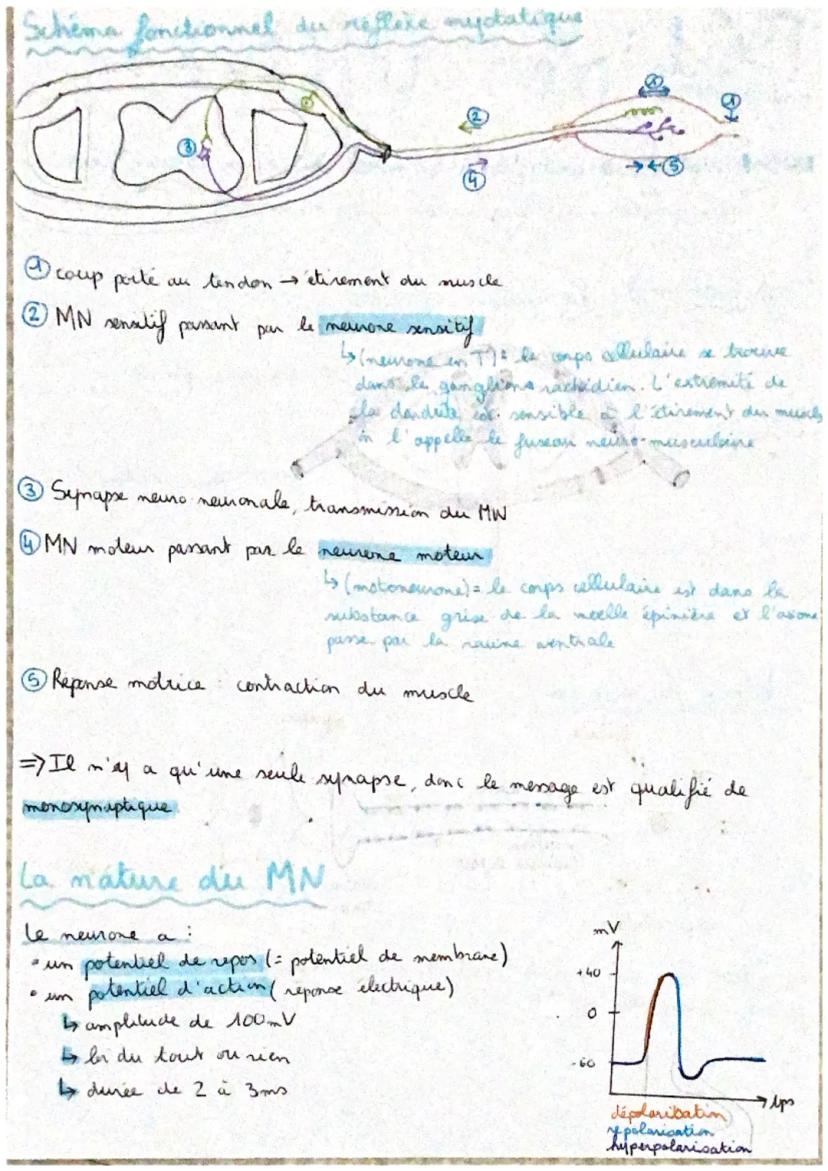 Schéma fonctionnel du réflexe myotatique
①
②
①
③
④
⑤
① coup porté au tendon → étirement du muscle
② MN sensitif passant par le neurone sensitif
↳ (neurone en T) = le corps cellulaire se trouve
dans le ganglion rachidien. L'extrémité de
la dendrite est sensible à l'étirement du muscle
on l'appelle le fuseau neuro-musculaire
③ Synapse neuro-neuronale, transmission du MN
④ MN moteur passant par le neurone moteur
↳ (motoneurone) = le corps cellulaire est dans la
substance grise de la moelle épinière et l'axone
passe par la racine ventrale
⑤ Réponse motrice : contraction du muscle
=> Il n'y a qu'une seule synapse, donc le message est qualifié de
monosynaptique.
La nature du MN
Le neurone a :
• un potentiel de repos (= potentiel de membrane)
• un potentiel d'action (réponse électrique)
↳ amplitude de 100mV
↳ loi du tout ou rien
↳ durée de 2 à 3ms
mV
+40
0
-60
tps
dépolarisation
repolarisation
hyperpolarisation